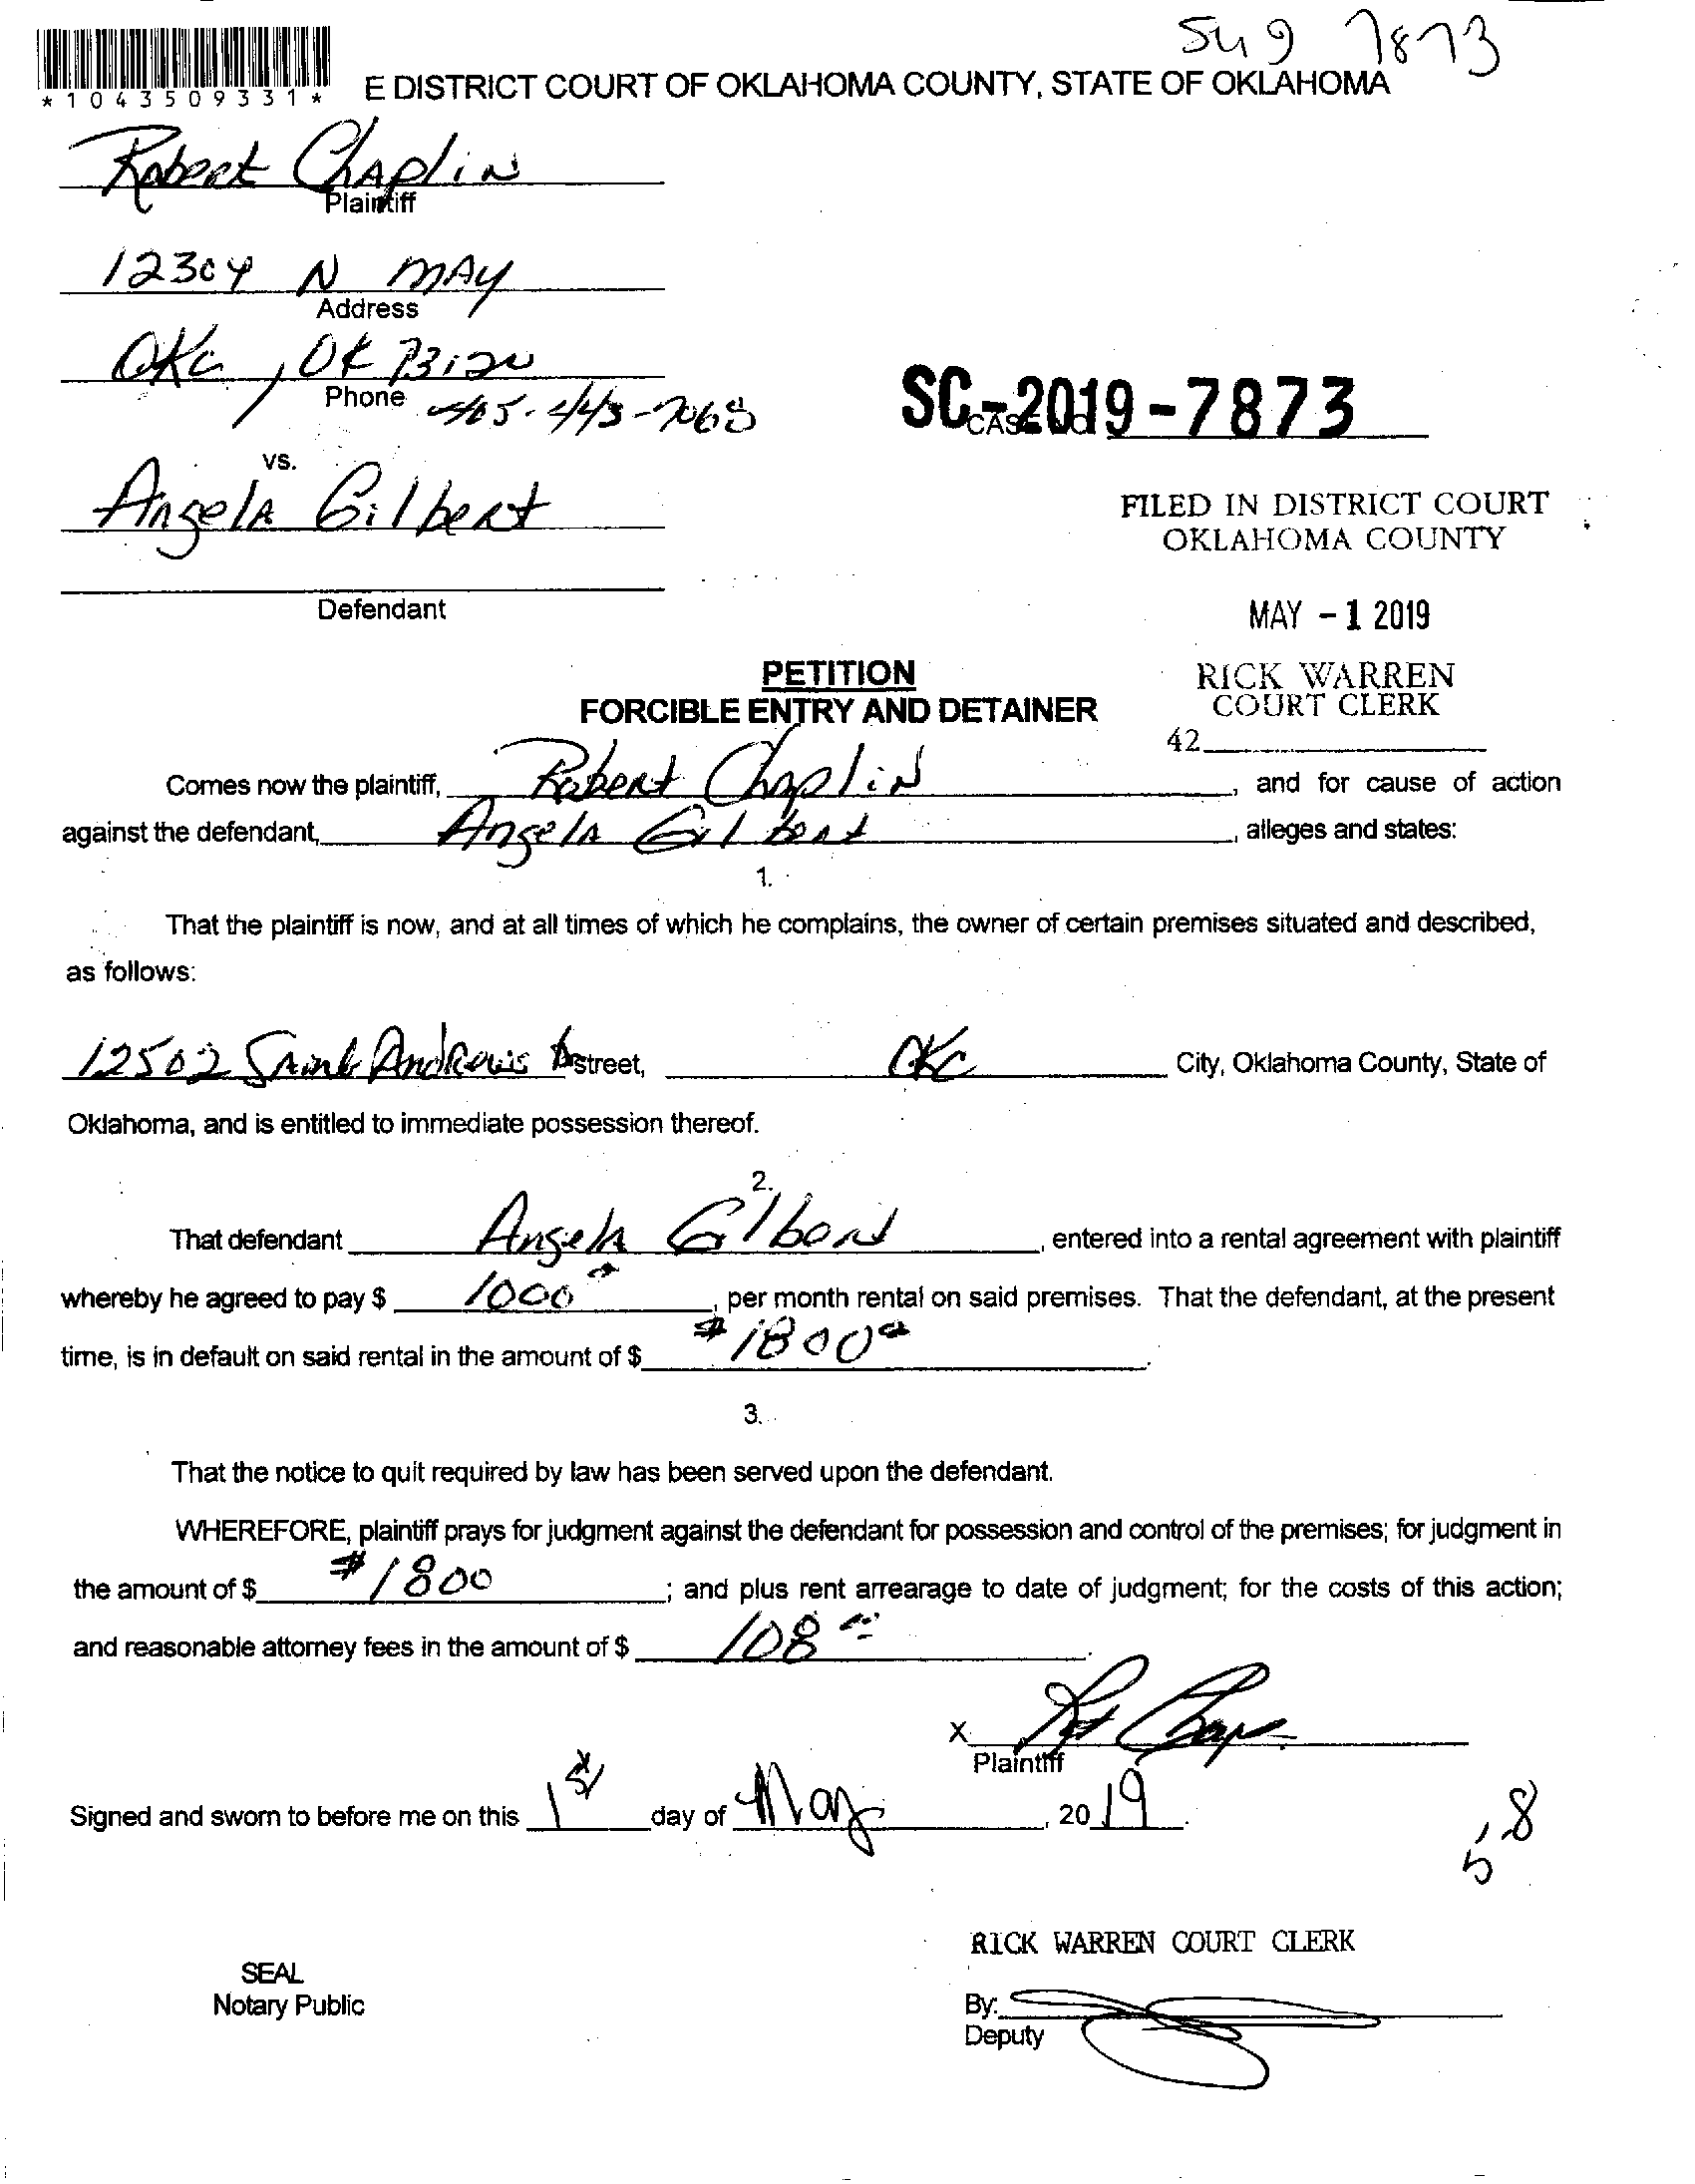 7873
*1043509331*
E DISTRICT COURT OF OKLAHOMA COUNTY, STATE OF OKLAHOMA
Robert Chaplin
Plaintiff
12304 N MAY
Address
OKC, OK 73120
Phone 405-443-7068
vs.
SC-2019-7873
Angela Gilbert
FILED IN DISTRICT COURT
OKLAHOMA COUNTY
Defendant
MAY -1 2019
PETITION
FORCIBLE ENTRY AND DETAINER
RICK WARREN
COURT CLERK
42
Comes now the plaintiff, Robert Chaplin, and for cause of action
against the defendant, Angela Gilbert, alleges and states:
1.
That the plaintiff is now, and at all times of which he complains, the owner of certain premises situated and described,
as follows:
12502 Saint Andrews Dr street, OKC City, Oklahoma County, State of
Oklahoma, and is entitled to immediate possession thereof.
2.
That defendant Angela Gilbert, entered into a rental agreement with plaintiff
whereby he agreed to pay $ 1000, per month rental on said premises. That the defendant, at the present
time, is in default on said rental in the amount of $ $1800.
3.
That the notice to quit required by law has been served upon the defendant.
WHEREFORE, plaintiff prays for judgment against the defendant for possession and control of the premises; for judgment in
the amount of $ $1800; and plus rent arrearage to date of judgment; for the costs of this action;
and reasonable attorney fees in the amount of $ 108.
X
Plaintiff
Signed and sworn to before me on this 1st day of May, 2019.
5,8
RICK WARREN COURT CLERK
SEAL
Notary Public
By:
Deputy